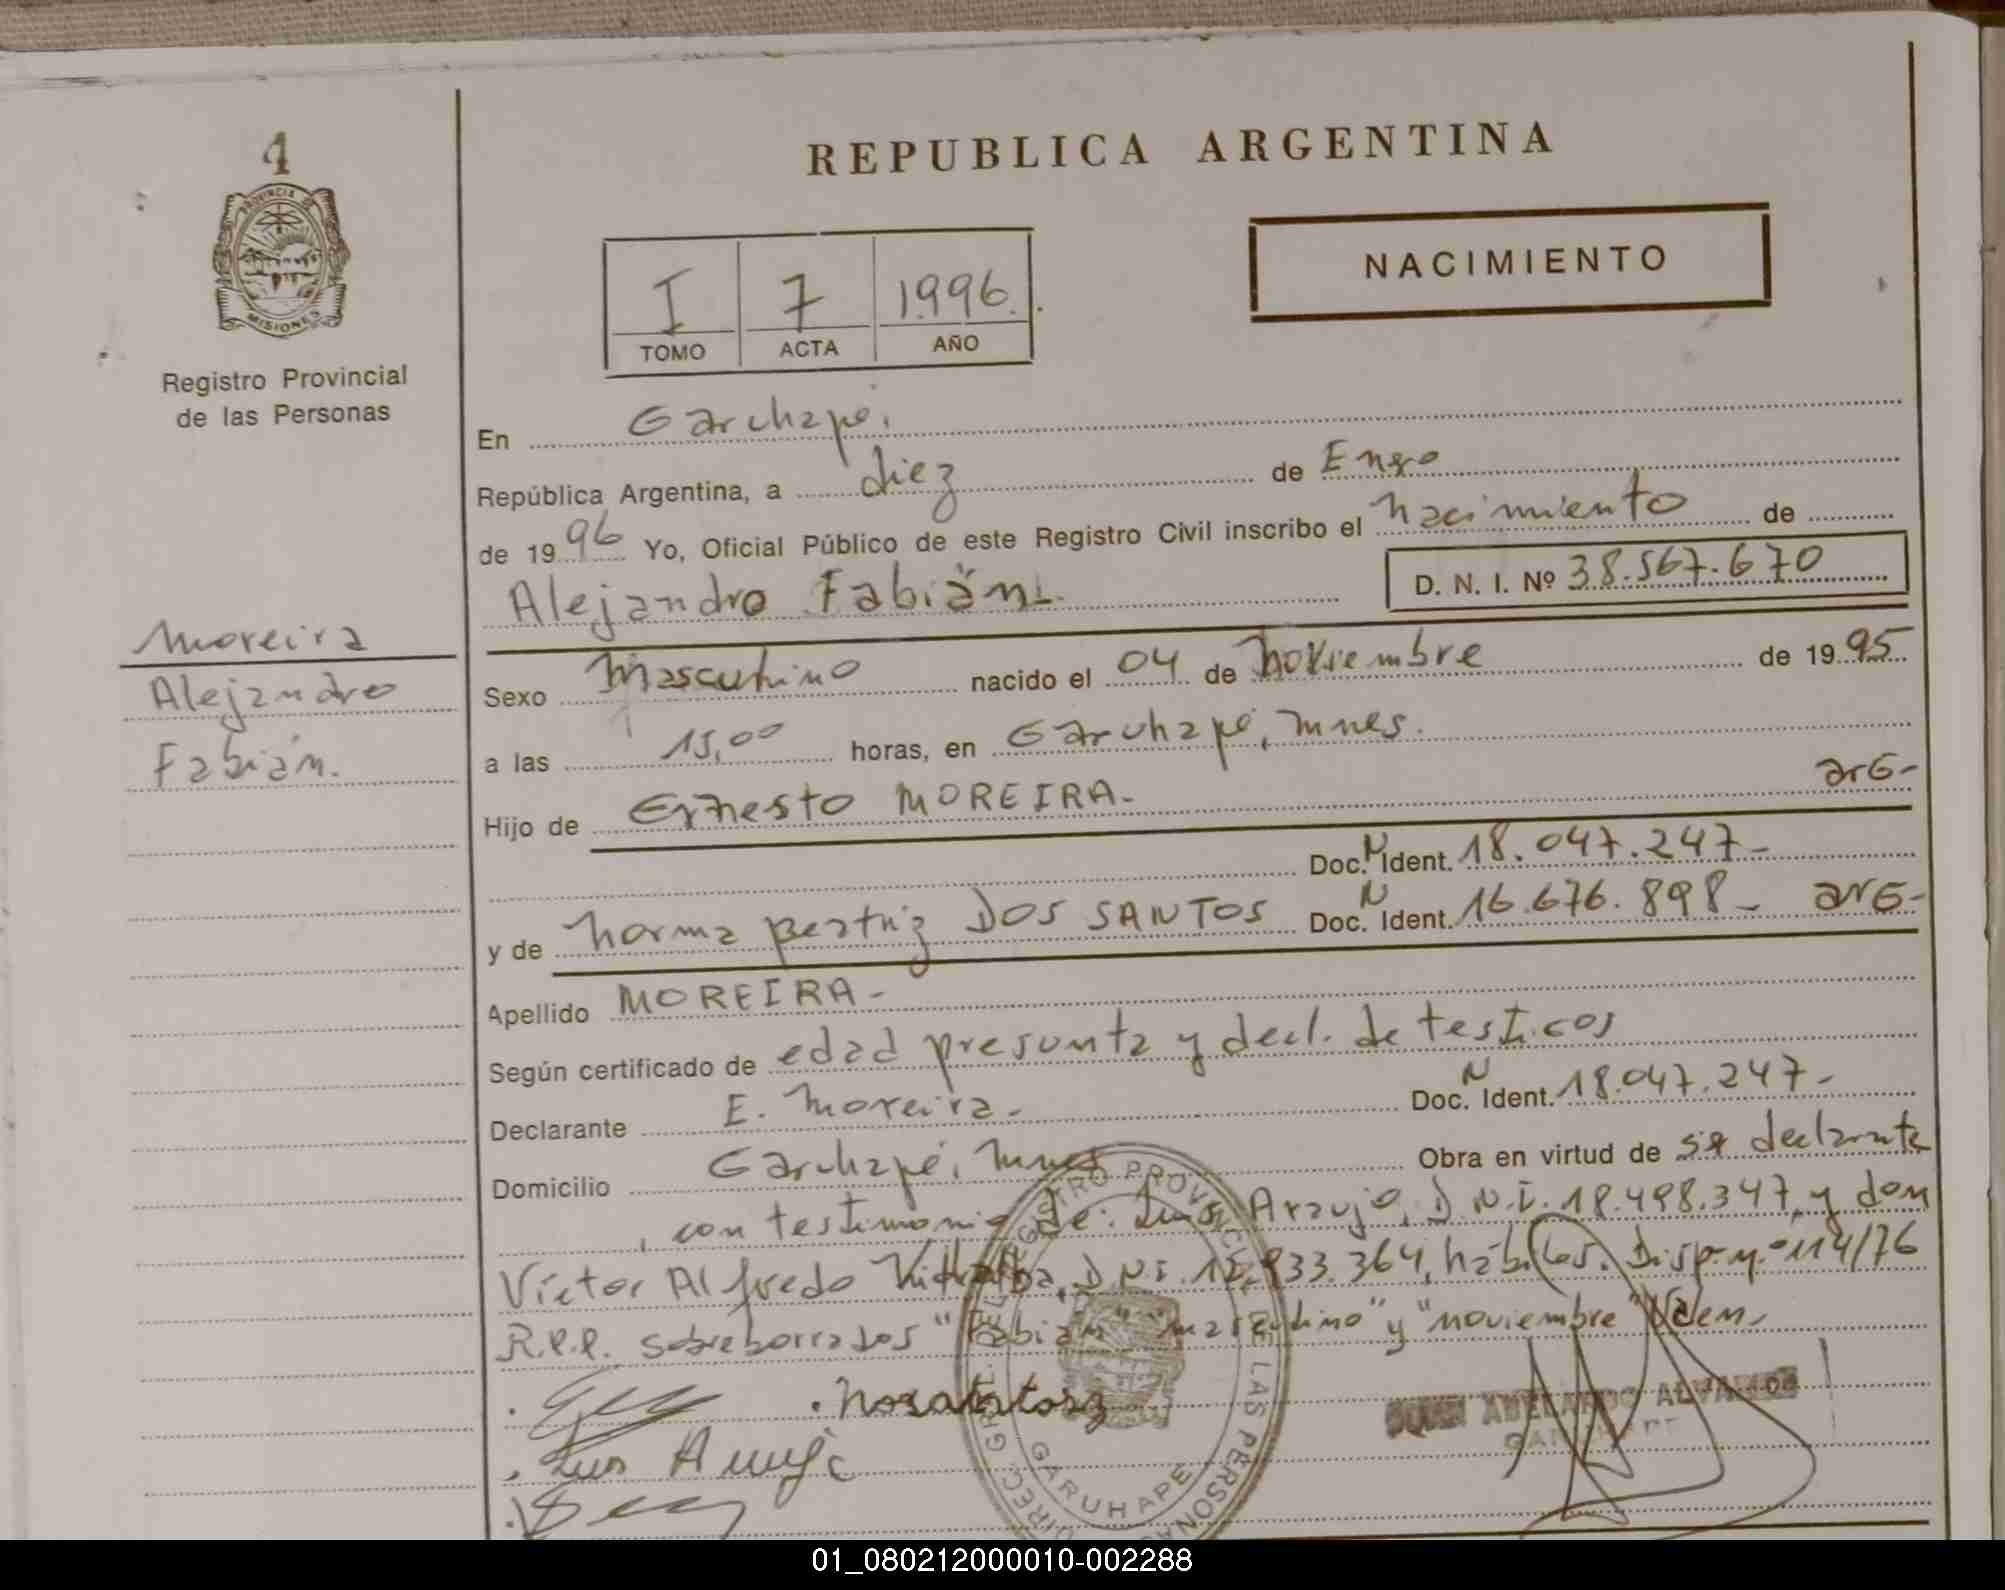 4
PROVINCIA DE
MISIONES
Registro Provincial
de las Personas
REPUBLICA ARGENTINA
NACIMIENTO
I 7 1.996.
TOMO ACTA AÑO
En Garuhapé.
República Argentina, a diez de Enero
de 1996 Yo, Oficial Público de este Registro Civil inscribo el nacimiento de
Alejandro Fabián.
D. N. I. Nº 38.567.670
Moreira
Alejandro
Fabián.
Sexo Masculino nacido el 04 de noviembre de 1995
a las 15,00 horas, en Garuhapé, Mnes.
Hijo de Ernesto MOREIRA- arG-
Doc. N Ident. 18.047.247-
y de Norma Beatriz DOS SANTOS Doc. N Ident. 16.676.898- arG-
Apellido MOREIRA-
Según certificado de edad presunta y decl. de testigos
Declarante E. Moreira- Doc. N Ident. 18.047.247-
Domicilio Garuhapé, Mnes Obra en virtud de ser declarante
, con testimonio de: Luis Araujo, D.N.I. 18.498.347, y don
Víctor Alfredo D.N.I. 933.364, hábiles. Disp. nº 114/76
R.P.P. sobreborrados "Fabián" "masculino" y "noviembre" Valen-
Luis Araujo
DIREC. GRAL. DEL REGISTRO PROVINCIAL DE LAS PERSONAS
GARUHAPE
ABELARDO
01_080212000010-002288